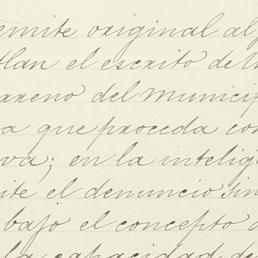 remite original al
tlan el escrito de
rreno del Municip
a que proceda con
va; en la intelig
ite el denuncio sin
bajo el concepto d
la capacidad de